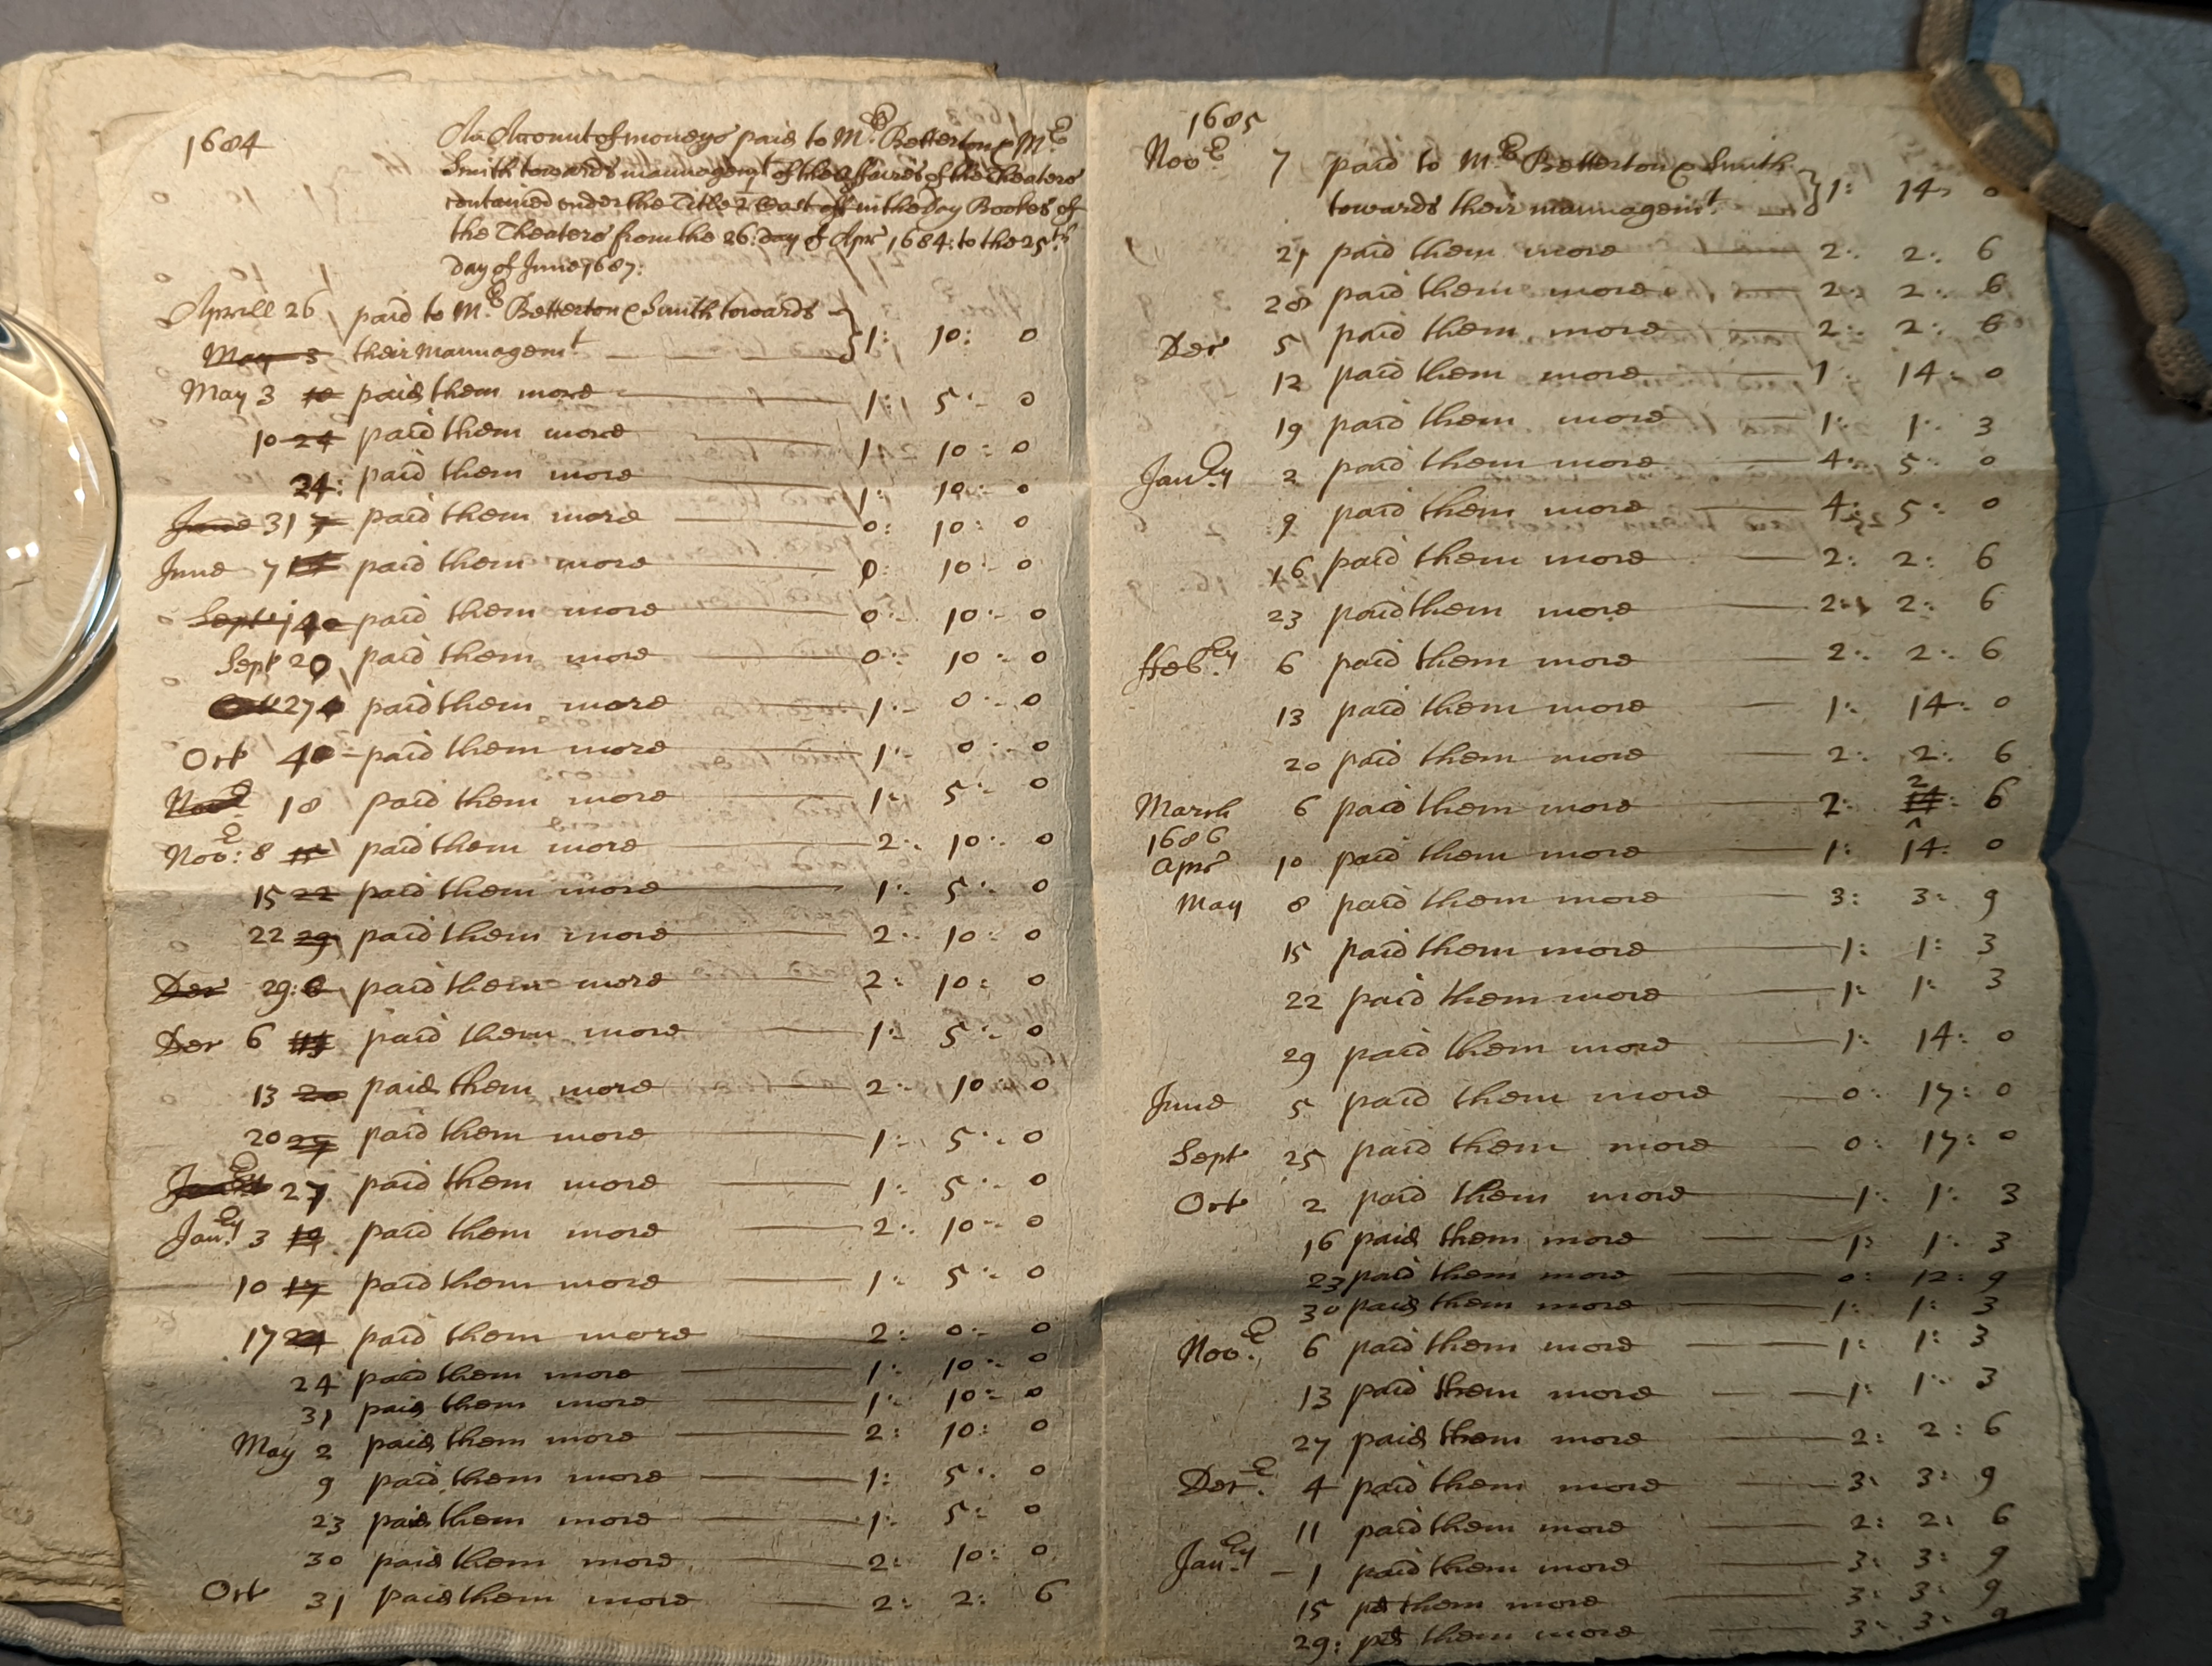 1684
An Account of moneys paid to Mr Betterton & Mr
Smith towards mannagemt of the Affaires of the Theatere
contained under the Title in the Day Bookes of
the Theatere from the 26: day of Apr 1684: to the 25th
day of June 1687:
Aprill 26 paid to Mr Betterton & Smith towards
May 3 their Mannagemt } 1: 10: 0
May 3 10 paid them more 1: 5: 0
10 24 paid them more 1: 10: 0
24: paid them more 1: 10: 0
June 31 7 paid them more 0: 10: 0
June 7 14 paid them more 0: 10: 0
Sept 14 paid them more 0: 10: 0
Sept 20 paid them more 0: 10: 0
27 paid them more 1: 0: 0
Oct 4 paid them more 1: 0: 0
Nov 18 paid them more 1: 5: 0
Nov: 8 15 paid them more 2: 10: 0
15 22 paid them more 1: 5: 0
22 29 paid them more 2: 10: 0
Dec 29: 6 paid them more 2: 10: 0
Dec 6 paid them more 1: 5: 0
13 20 paid them more 2: 10: 0
20 27 paid them more 1: 5: 0
27 paid them more 1: 5: 0
Janry 3 10 paid them more 2: 10: 0
10 17 paid them more 1: 5: 0
17 24 paid them more 2: 0: 0
24 paid them more 1: 10: 0
31 paid them more 1: 10: 0
May 2 paid them more 2: 10: 0
9 paid them more 1: 5: 0
23 paid them more 1: 5: 0
30 paid them more 2: 10: 0
Oct 31 paid them more 2: 2: 6
1685
Novr 7 paid to Mr Betterton & Smith
towards their mannagemt. } 1: 14: 0
21 paid them more 2: 2: 6
28 paid them more 2: 2: 6
Dec 5 paid them more 2: 2: 6
12 paid them more 1: 14: 0
19 paid them more 1: 1: 3
Janry 2 paid them more 4: 5: 0
9 paid them more 4: 5: 0
16 paid them more 2: 2: 6
23 paid them more 2: 2: 6
ffebry 6 paid them more 2: 2: 6
13 paid them more 1: 14: 0
20 paid them more 2: 2: 6
March 6 paid them more 2: 2 14: 6
1686
Apr 10 paid them more 1: 14: 0
May 8 paid them more 3: 3: 9
15 paid them more 1: 1: 3
22 paid them more 1: 1: 3
29 paid them more 1: 14: 0
June 5 paid them more 0: 17: 0
Sept 25 paid them more 0: 17: 0
Oct 2 paid them more 1: 1: 3
16 paid them more 1: 1: 3
23 paid them more 0: 12: 9
30 paid them more 1: 1: 3
Novr 6 paid them more 1: 1: 3
13 paid them more 1: 1: 3
27 paid them more 2: 2: 6
Decr. 4 paid them more 3: 3: 9
11 paid them more 2: 2: 6
Janry 1 paid them more 3: 3: 9
15 pd them more 3: 3: 9
29: pd them more 3: 3: 9